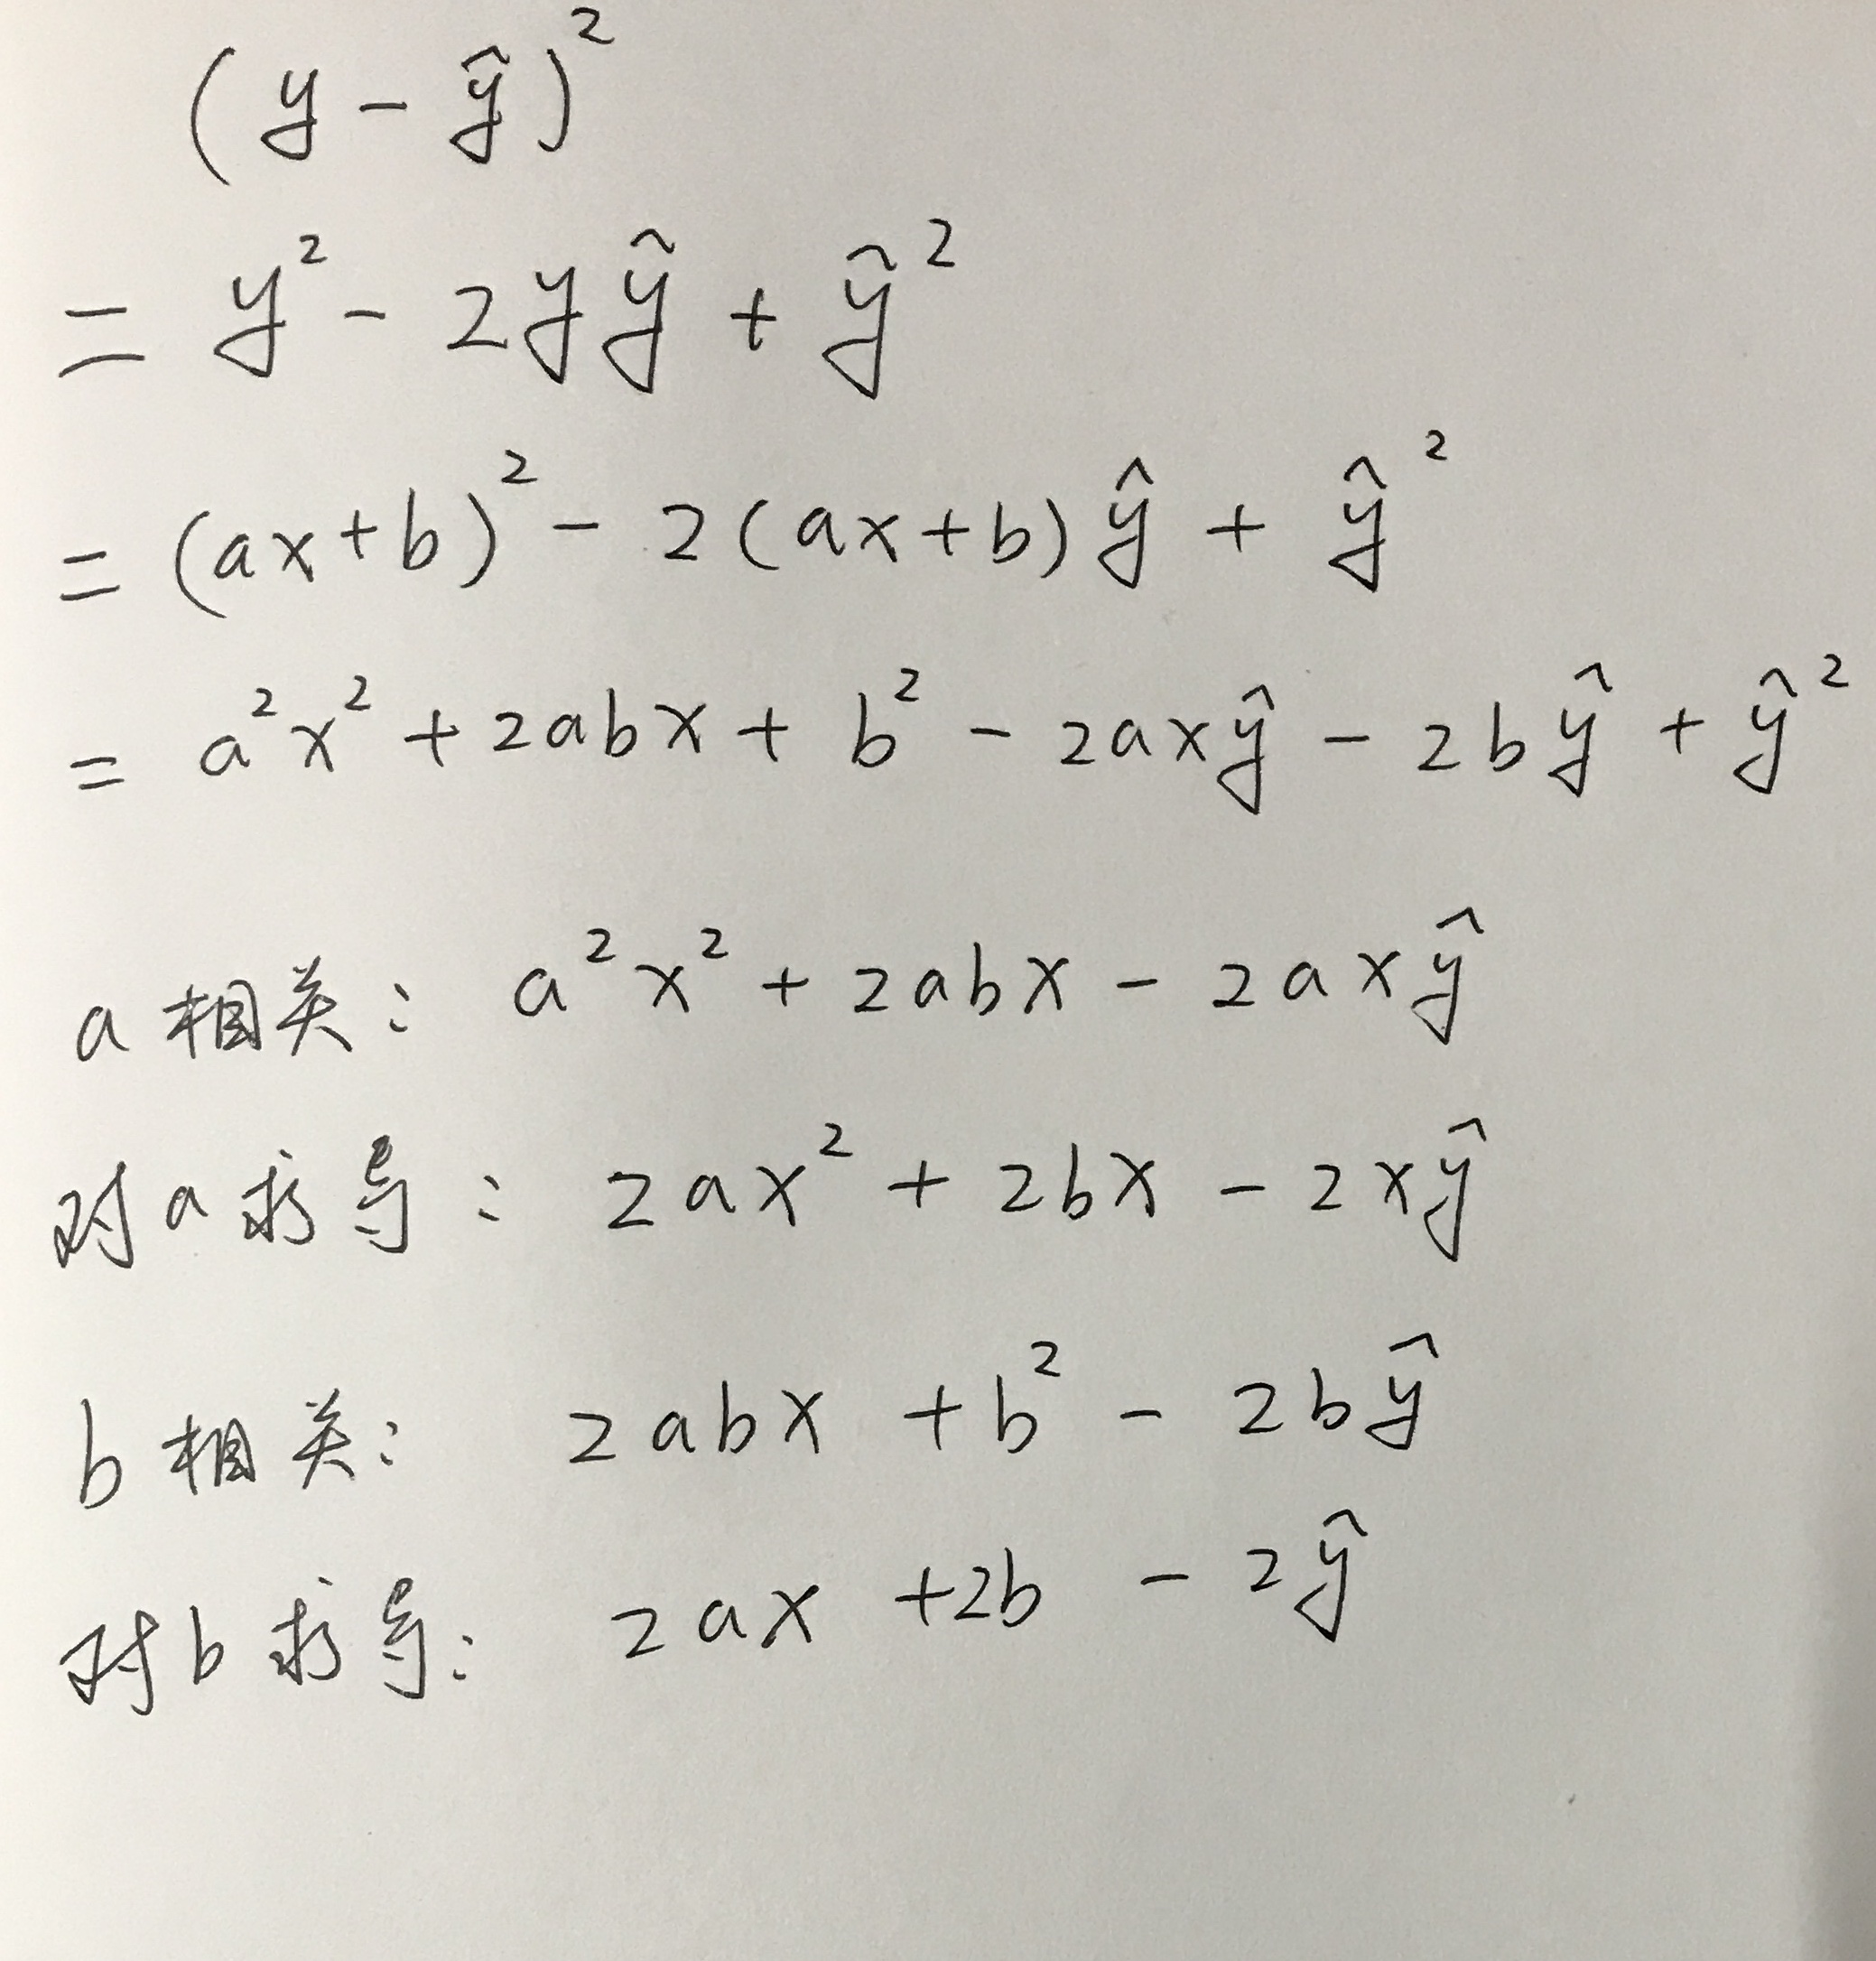 (y - ŷ)²
= y² - 2yŷ + ŷ²
= (ax+b)² - 2(ax+b)ŷ + ŷ²
= a²x² + 2abx + b² - 2axŷ - 2bŷ + ŷ²
a相关: a²x² + 2abx - 2axŷ
对a求导: 2ax² + 2bx - 2xŷ
b相关: 2abx + b² - 2bŷ
对b求导: 2ax + 2b - 2ŷ